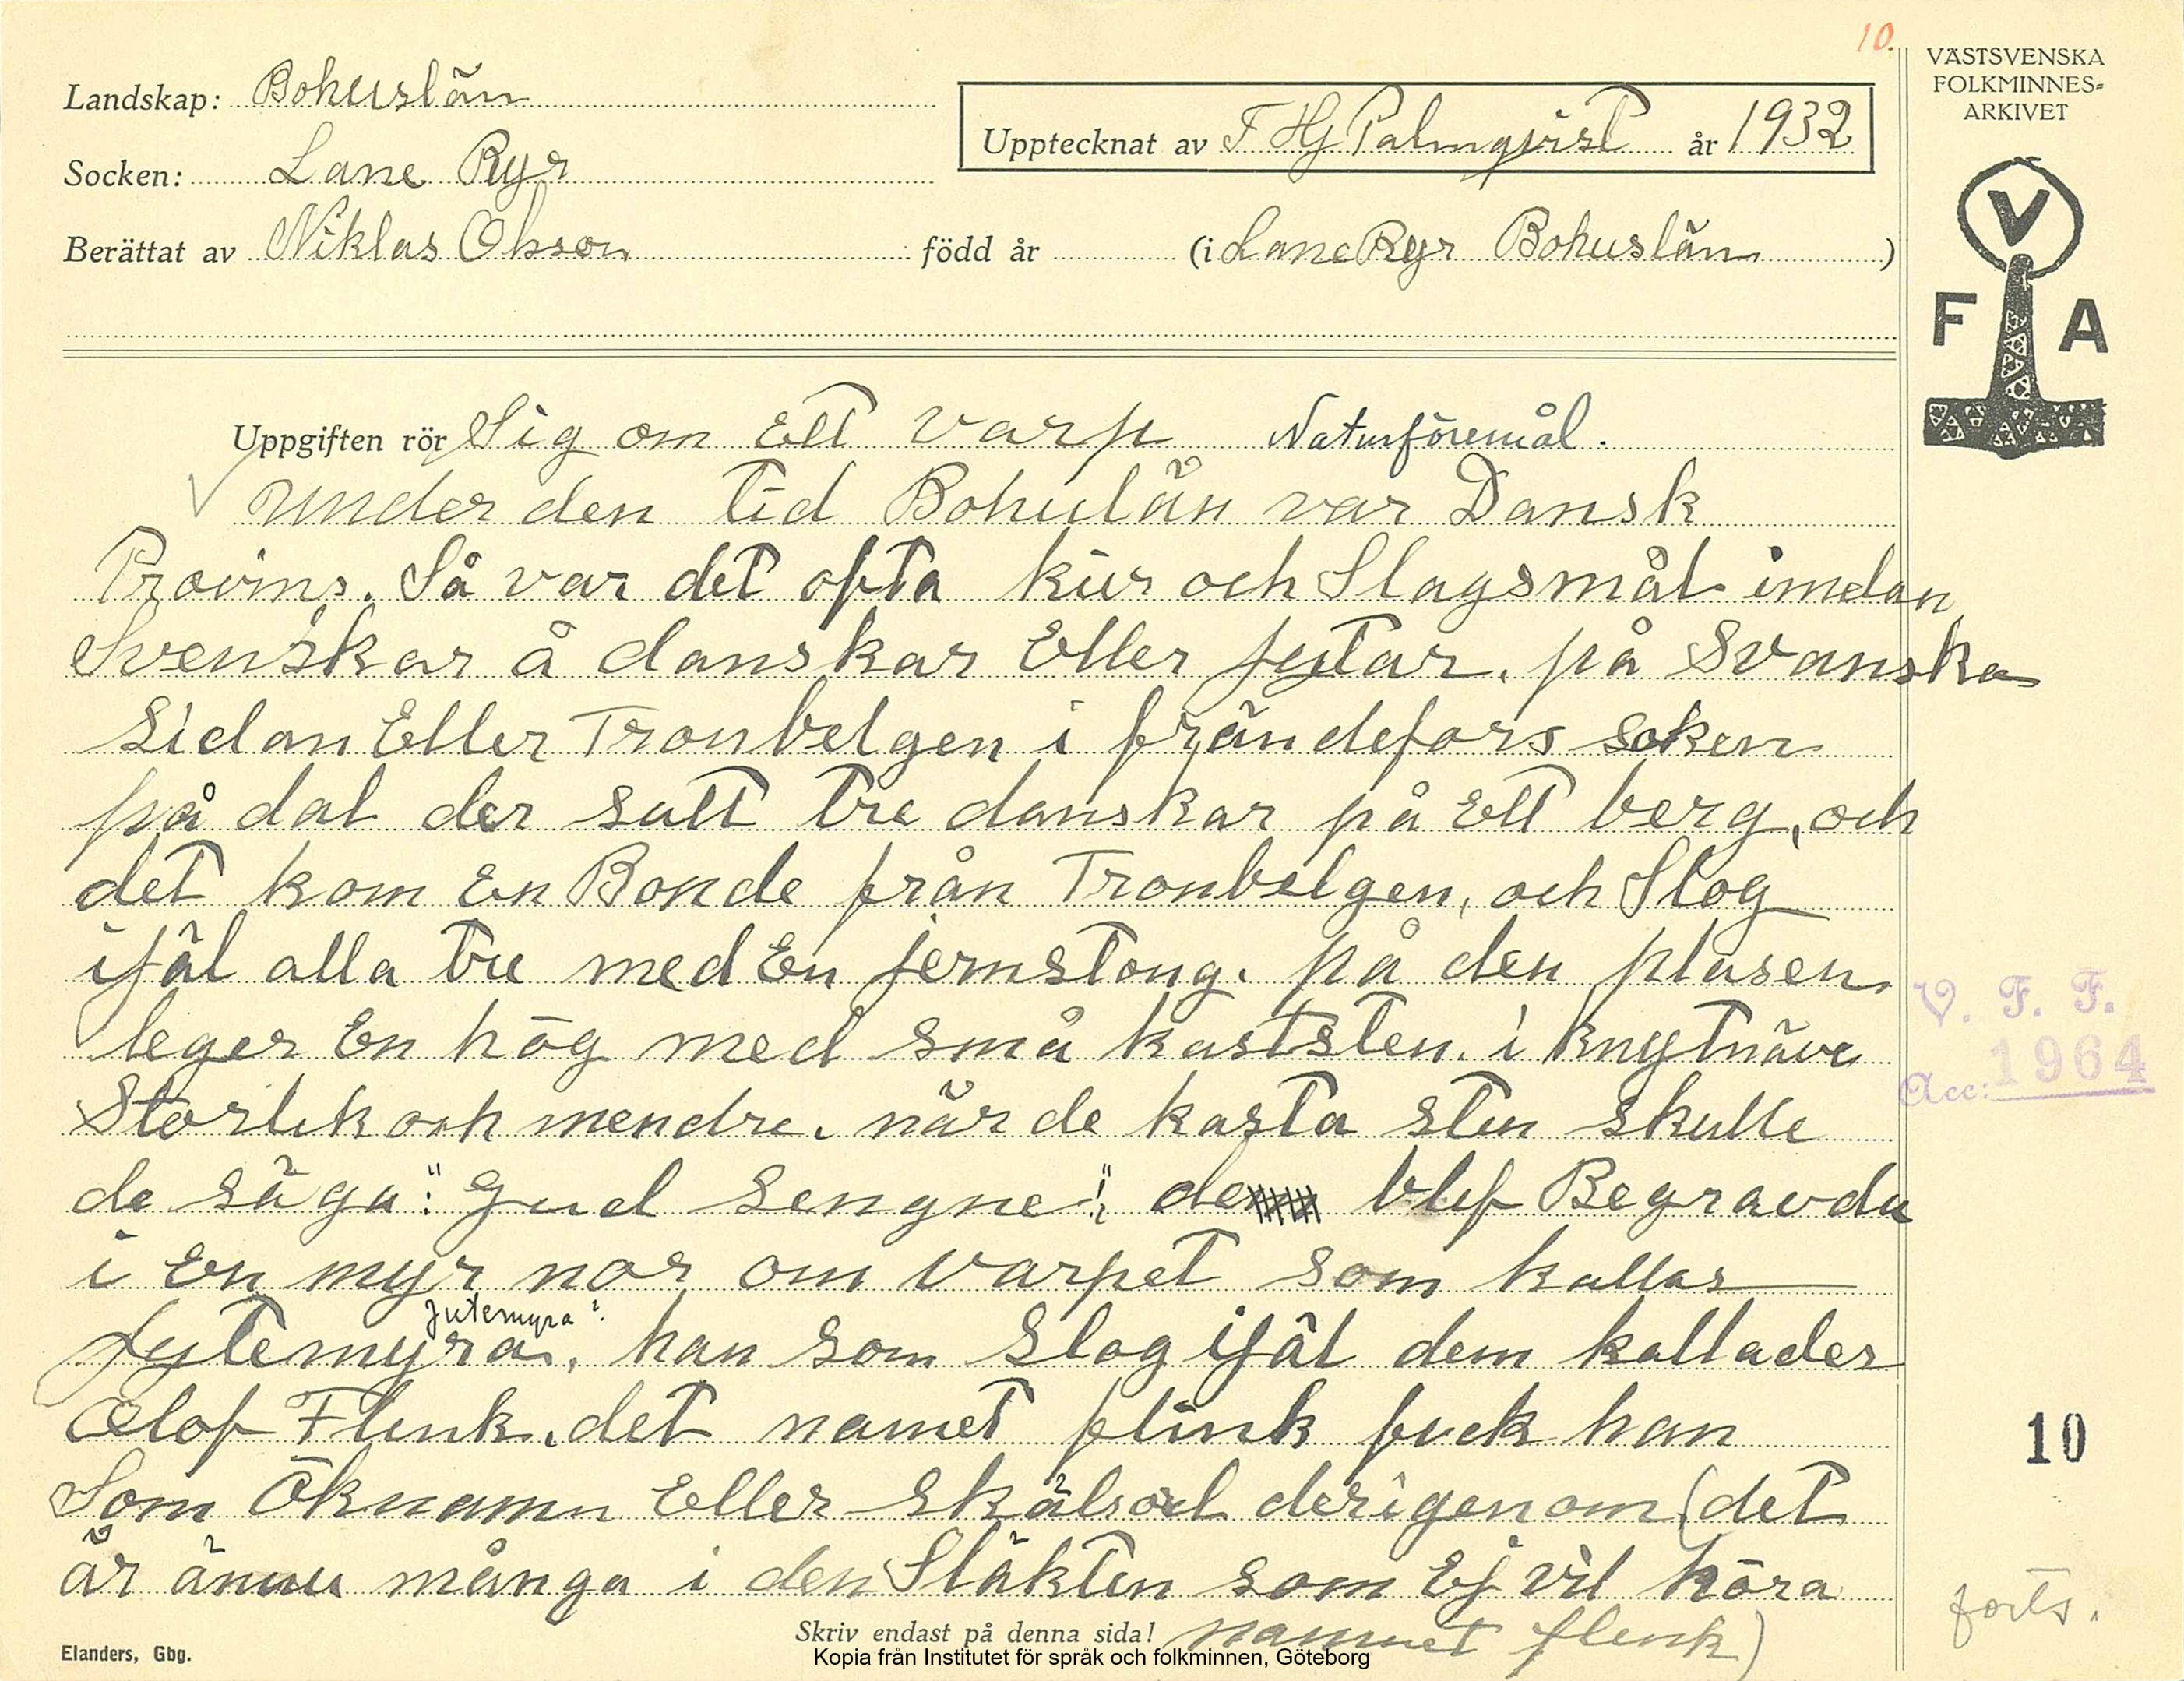 10.
VÄSTSVENSKA
FOLKMINNES=
ARKIVET
Landskap: Bohuslän
Upptecknat av F Hj Palmqvist år 1932
Socken: Lane Ryr
Berättat av Niklas Olsson född år (i Lane Ryr Bohuslän )
V
F A
Uppgiften rör Sig om Ett varp Naturföremål.
under den tid Bohulän var Dansk
Provins. Så var det ofta kiv och Slagsmål imelan
Svenskar å danskar Eller jytar. på Svanska
Sidan Eller Tronbelgen i frändefors soken
på dal der satt tre danskar på Ett berg, och
det kom En Bonde från Tronbelgen, och Slog
ijäl alla tre med En jernstong. på den plasen
leger En hög med små kaststen. i knytnäve
Storlek och mendre. när de kasta sten skulle
de säga: "Gud sengne", de blef Begravda
i En myr nor om varpet som kallas
Jutemyra?
Jytemyra, han som Slog ijäl dem kallades
Olof Flink. det namet flink fick han
Som Öknamn Eller skälsord derigenom (det
är ännu många i den Släkten som Ej vil höra
namnet flenk)
V. F. F.
Acc: 1964
10
forts.
Skriv endast på denna sida!
Elanders, Gbg.
Kopia från Institutet för språk och folkminnen, Göteborg